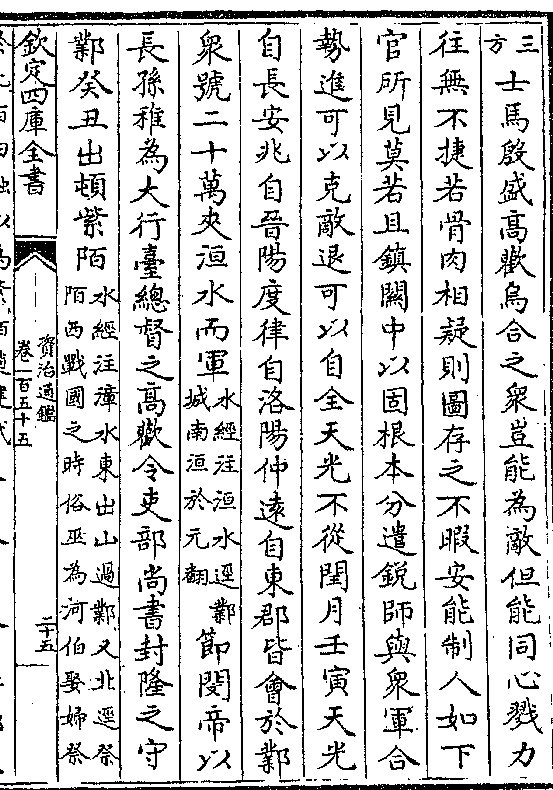 三方
士馬殷盛高歡烏合之衆豈能為敵但能同心戮力
往無不捷若骨肉相疑則圖存之不暇安能制人如下
官所見莫若且鎮關中以固根本分遣鋭師與衆軍合
勢進可以克敵退可以自全天光不從閏月壬寅天光
自長安兆自晉陽度律自洛陽仲遠自東郡皆會於鄴
衆號二十萬夾洹水而軍
水經注洹水逕鄴
城南洹於元翻
節閔帝以
長孫稚為大行臺總督之高歡令吏部尚書封隆之守
鄴癸丑出頓紫陌
水經注漳水東出山過鄴又北逕祭
陌西戰國之時俗巫為河伯娶婦祭
欽定四庫全書
資治通鑑
卷一百五十五
二十五